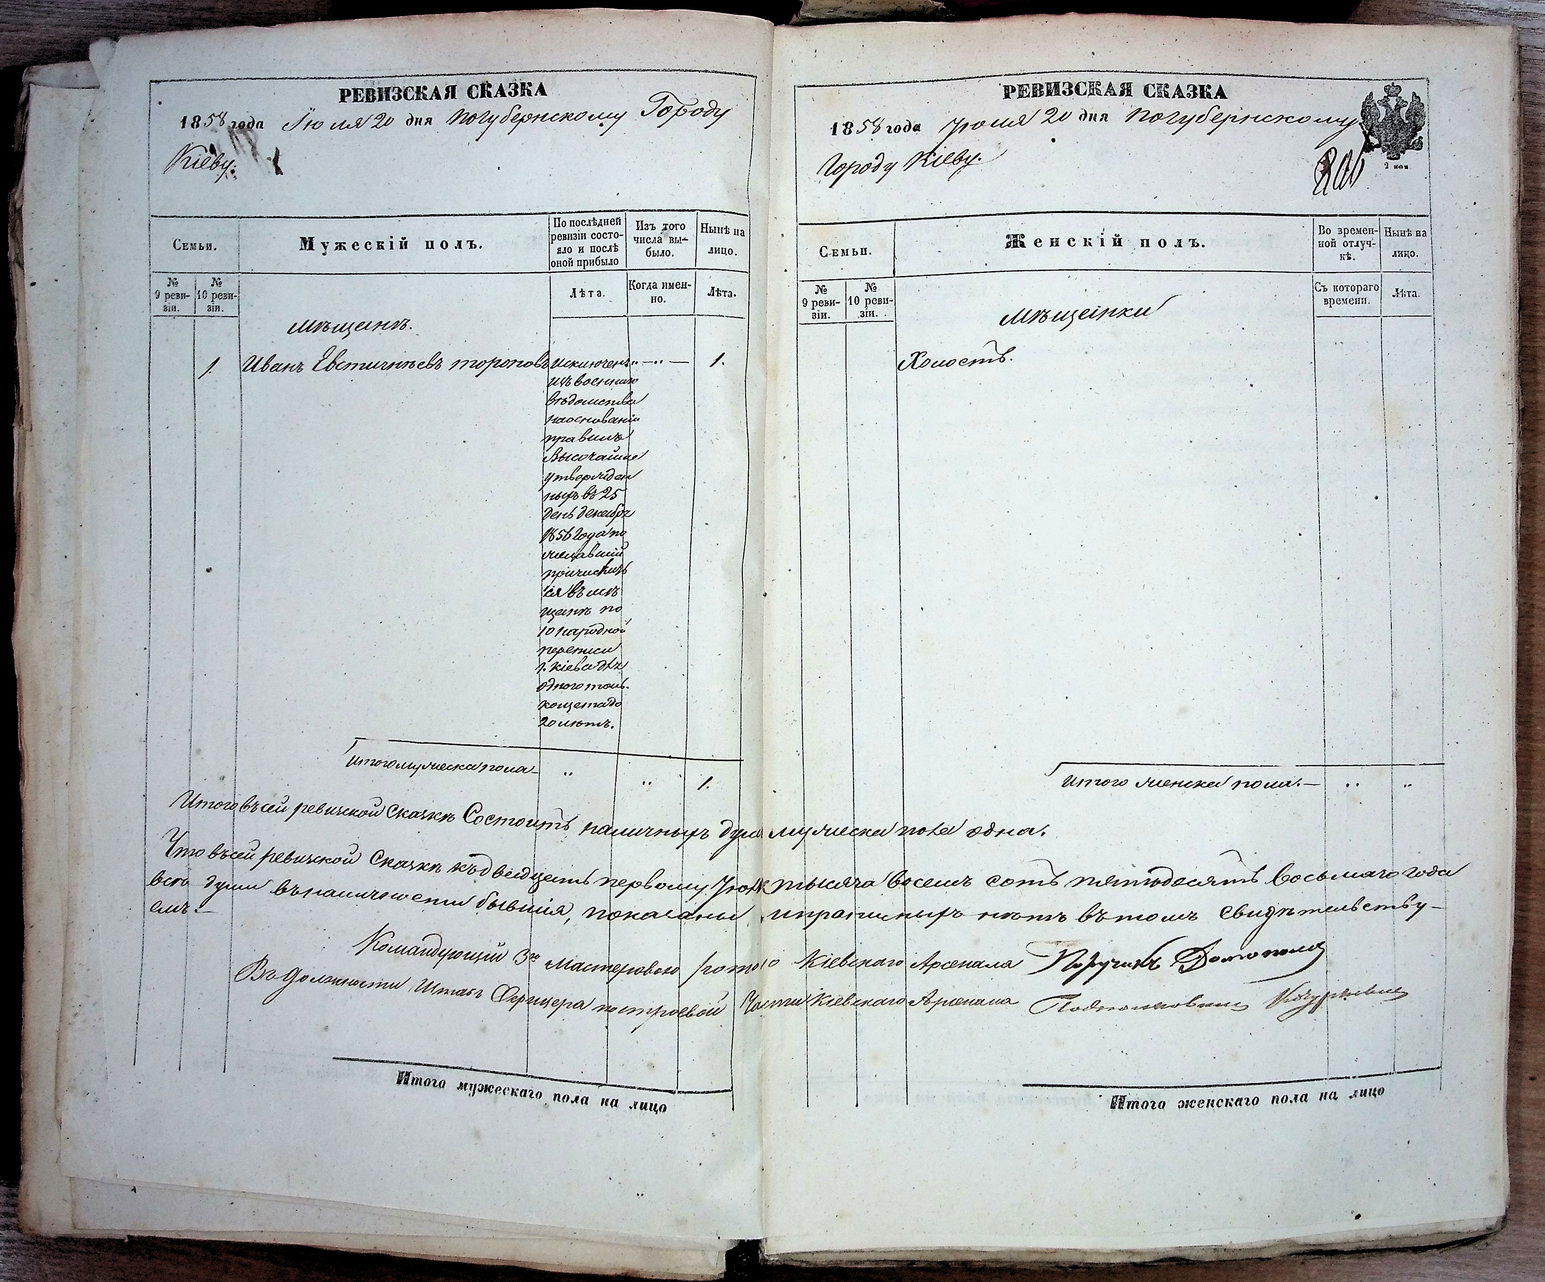 РЕВИЗСКАЯ СКАЗКА
1858 года Іюля 20 дня по губернскому Городу
Кіеву.
Семьи.
Мужескій полъ.
По послѣдней ревизіи состояло и послѣ оной прибыло
Изъ того числа выбыло.
Нынѣ на лицо.
№ 9 ревизіи.
№ 10 ревизіи.
Лѣта.
Когда именно.
Лѣта.
Мѣщанъ.
1. Иванъ Евстигнѣевъ Тороповъ
Исключенъ „ — „ — 1.
изъ военнаго
вѣдомства
на основаніи
правилъ
Высочайше
утвержден
ныхъ въ 25
день декабря
1856 года по
желавшій
причислить
ся въ мѣ
щане по
10 народной
переписи
г. Кіева для
одного толь
ко щета до
20 лѣтъ.
Итого мужеска пола — „ „ 1.
РЕВИЗСКАЯ СКАЗКА
1858 года Іюля 20 дня по губернскому
Городу Кіеву.
Семьи.
Женскій полъ.
Во временной отлучкѣ.
Нынѣ на лицо.
№ 9 ревизіи.
№ 10 ревизіи.
Съ котораго времени.
Лѣта.
Мѣщанки
Холостъ.
Итого женска пола. — „ „
Итого въ сей ревизской сказкѣ Состоитъ наличныхъ душъ мужеска пола одна.
Что въ сей ревизской Сказкѣ къ двадцать первому Іюля тысяча восемь сотъ пятьдесятъ восьмаго года
всѣ души въ наличности бывшія, показаны и прописныхъ нѣтъ въ томъ свидѣтельству—
емъ.—
Командующій 3ю Мастеровою ротою Кіевскаго Арсенала Поручикъ
Въ должности Штабъ Офицера по строевой Части Кіевскаго Арсенала Подполковникъ
Итого мужескаго пола на лицо
Итого женскаго пола на лицо